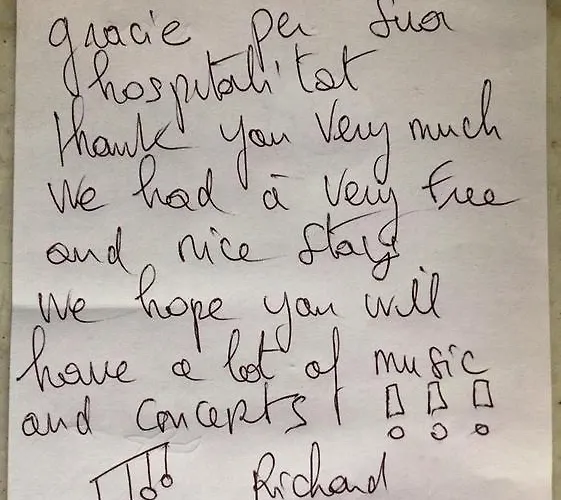 gracie per suor
hospitali'tat
thank you very much
We had a very free
and nice stays
We hope you will
have a lot of music
and concerts !!!
Richard